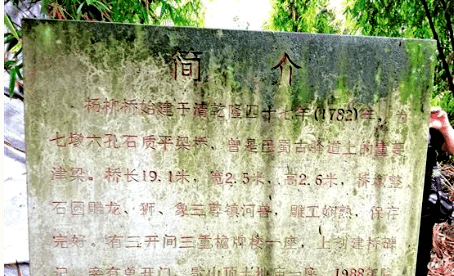 简 介
杨柳桥始建于清乾隆四十七年(1782)年，为
七墩六孔石质平梁桥，曾是巴蜀古驿道上的重要
津梁。桥长19.1米，宽2.5米，高2.6米，桥墩整
石圆雕龙、狮、象三尊镇河兽，雕工娴熟，保存
完好。有三开间三重檐牌楼一座，上刻建桥碑
记，旁有单开门、歇山顶土地庙一座。1988年